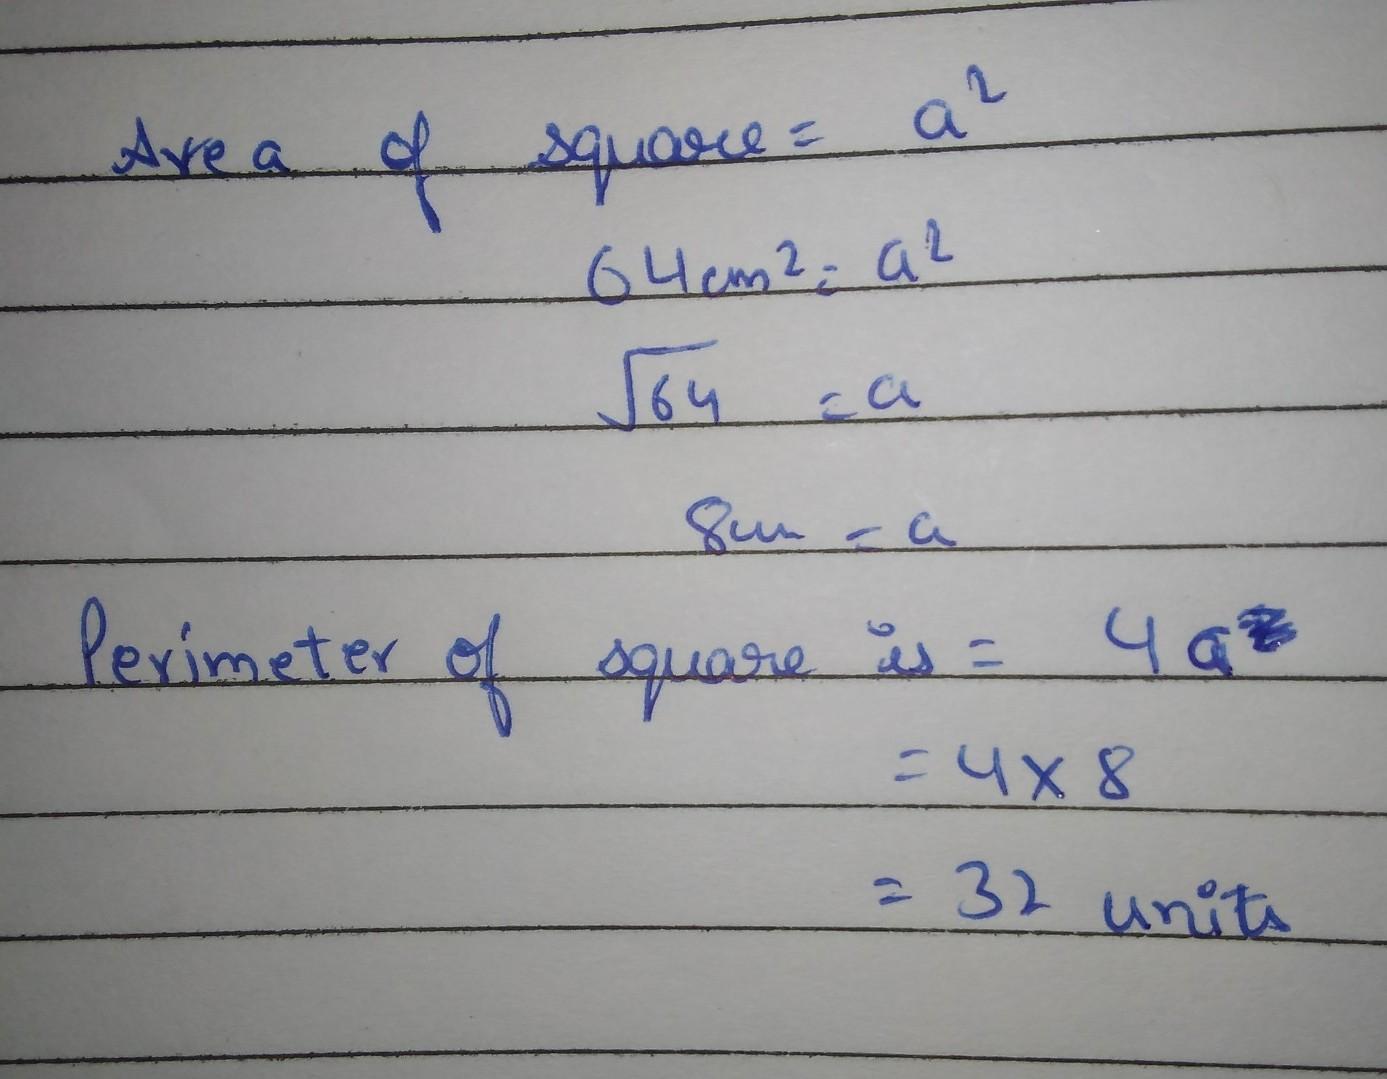 Area of square = a²
64cm² = a²
√64 = a
8cm = a
Perimeter of square is = 4a
= 4 x 8
= 32 units